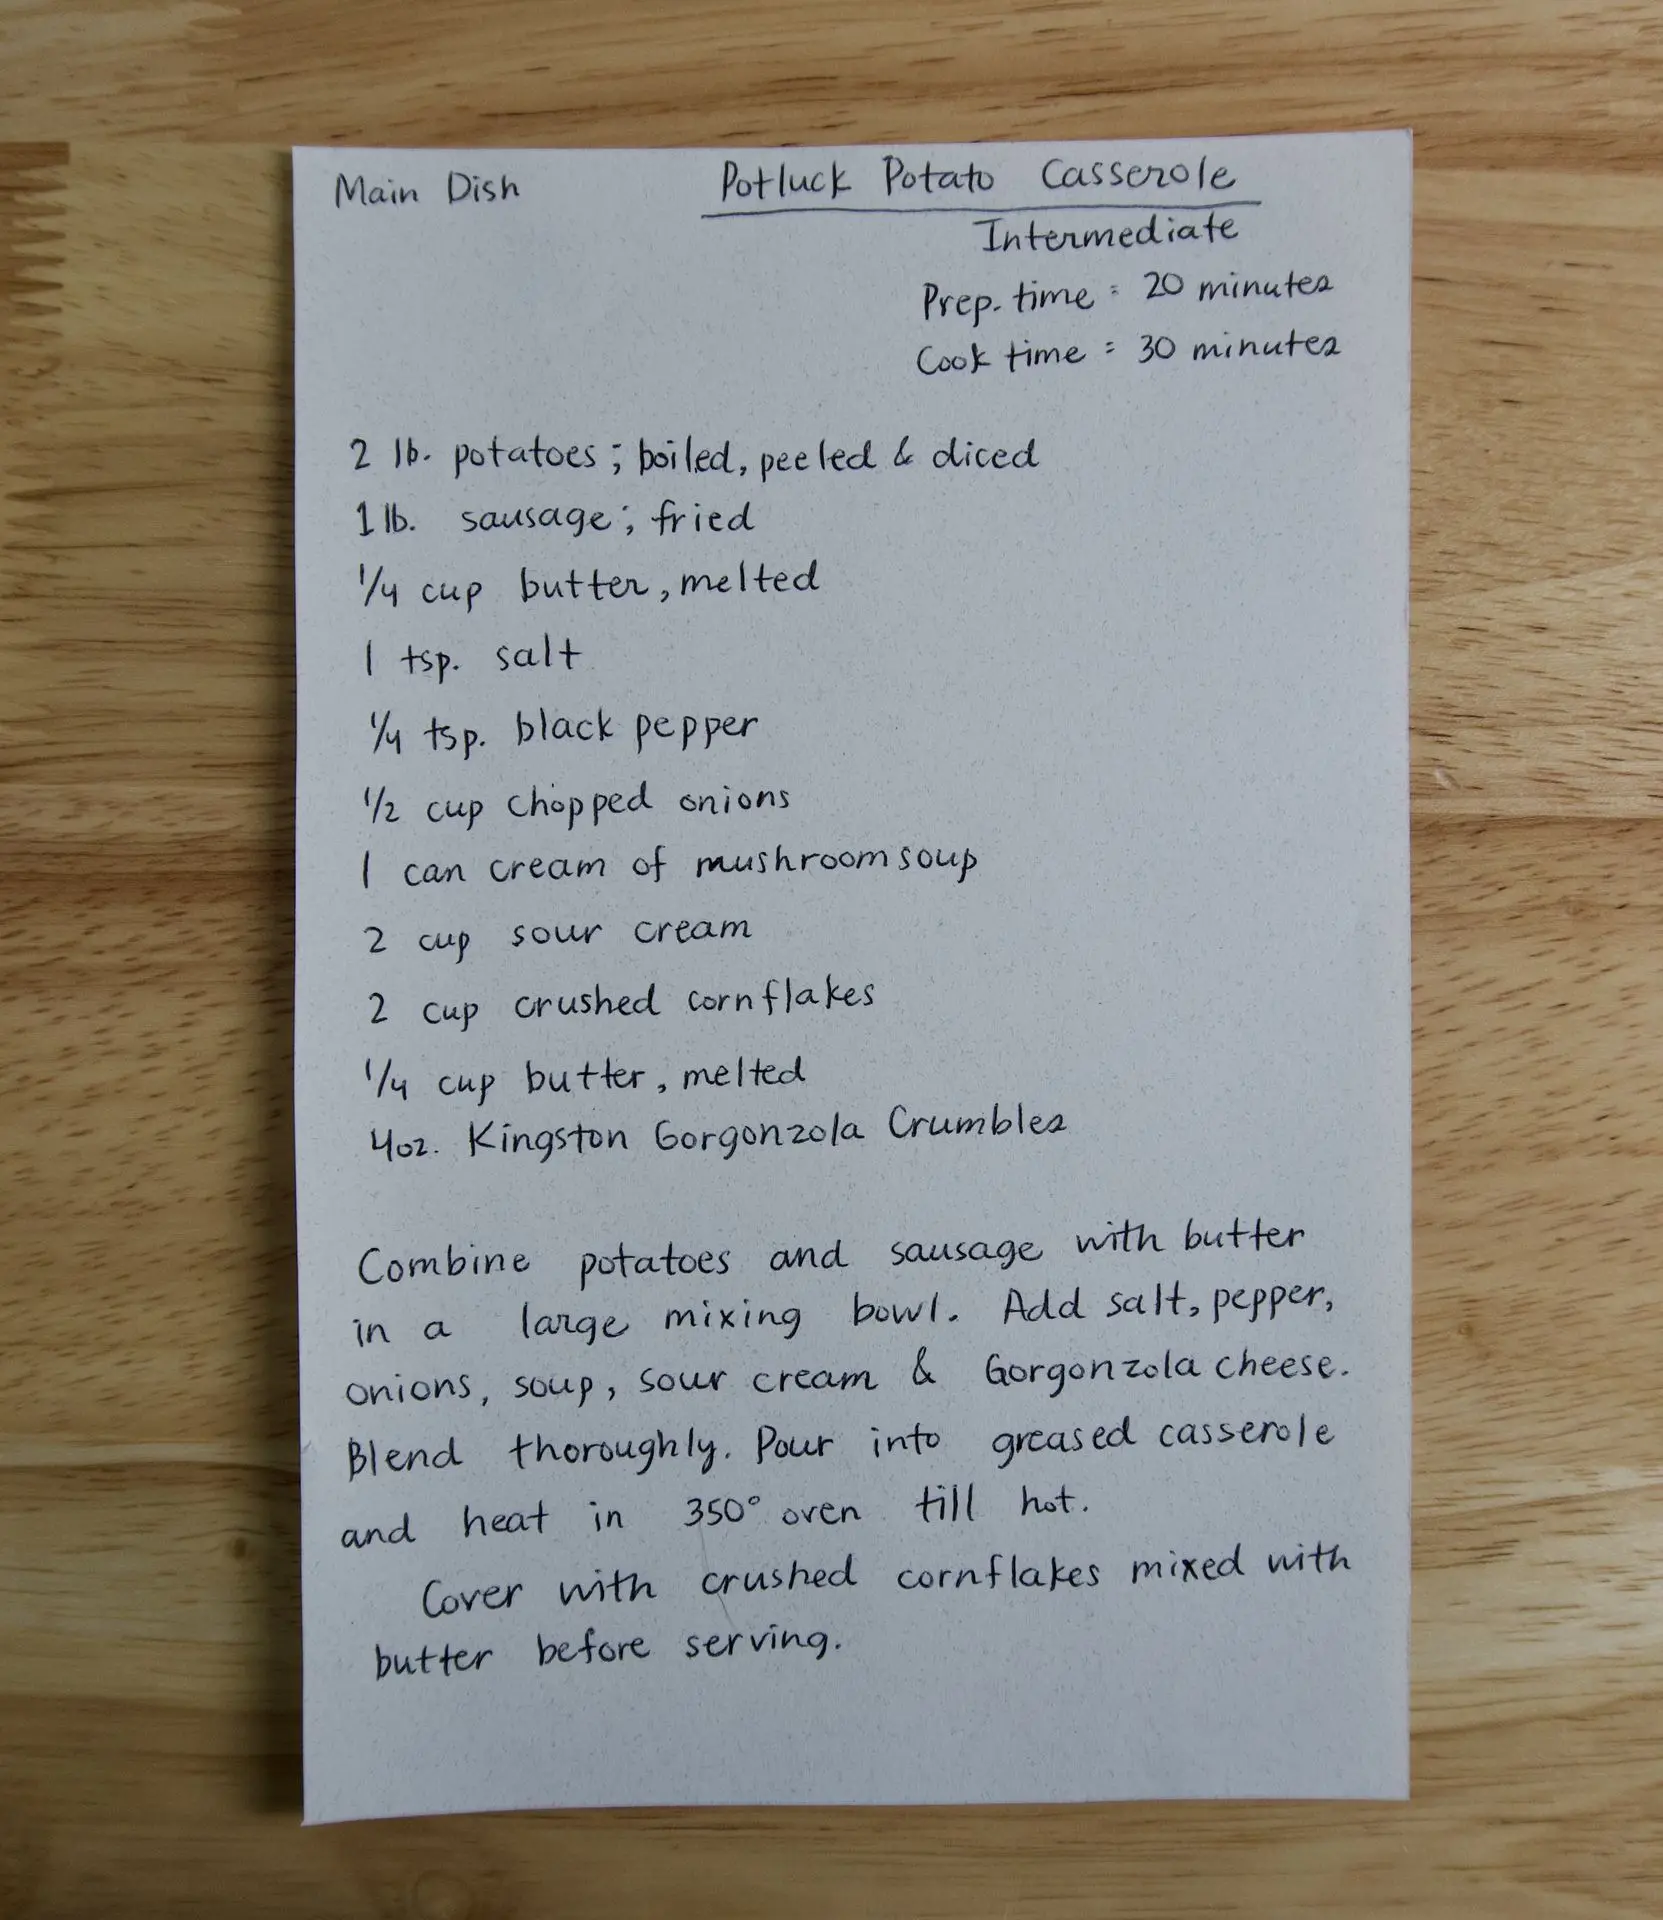 Main Dish
Potluck Potato Casserole
Intermediate
Prep. time : 20 minutes
Cook time : 30 minutes
2 lb. potatoes; boiled, peeled & diced
1 lb. sausage; fried
1/4 cup butter, melted
1 tsp. salt
1/4 tsp. black pepper
1/2 cup chopped onions
1 can cream of mushroom soup
2 cup sour cream
2 cup crushed cornflakes
1/4 cup butter, melted
4oz. Kingston Gorgonzola Crumbles
Combine potatoes and sausage with butter
in a large mixing bowl. Add salt, pepper,
onions, soup, sour cream & Gorgonzola cheese.
Blend thoroughly. Pour into greased casserole
and heat in 350° oven till hot.
Cover with crushed cornflakes mixed with
butter before serving.